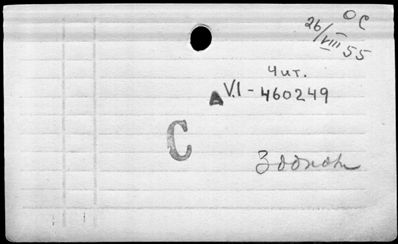 ОС
26/VIII 55
Чит.
А V.1-460249
С